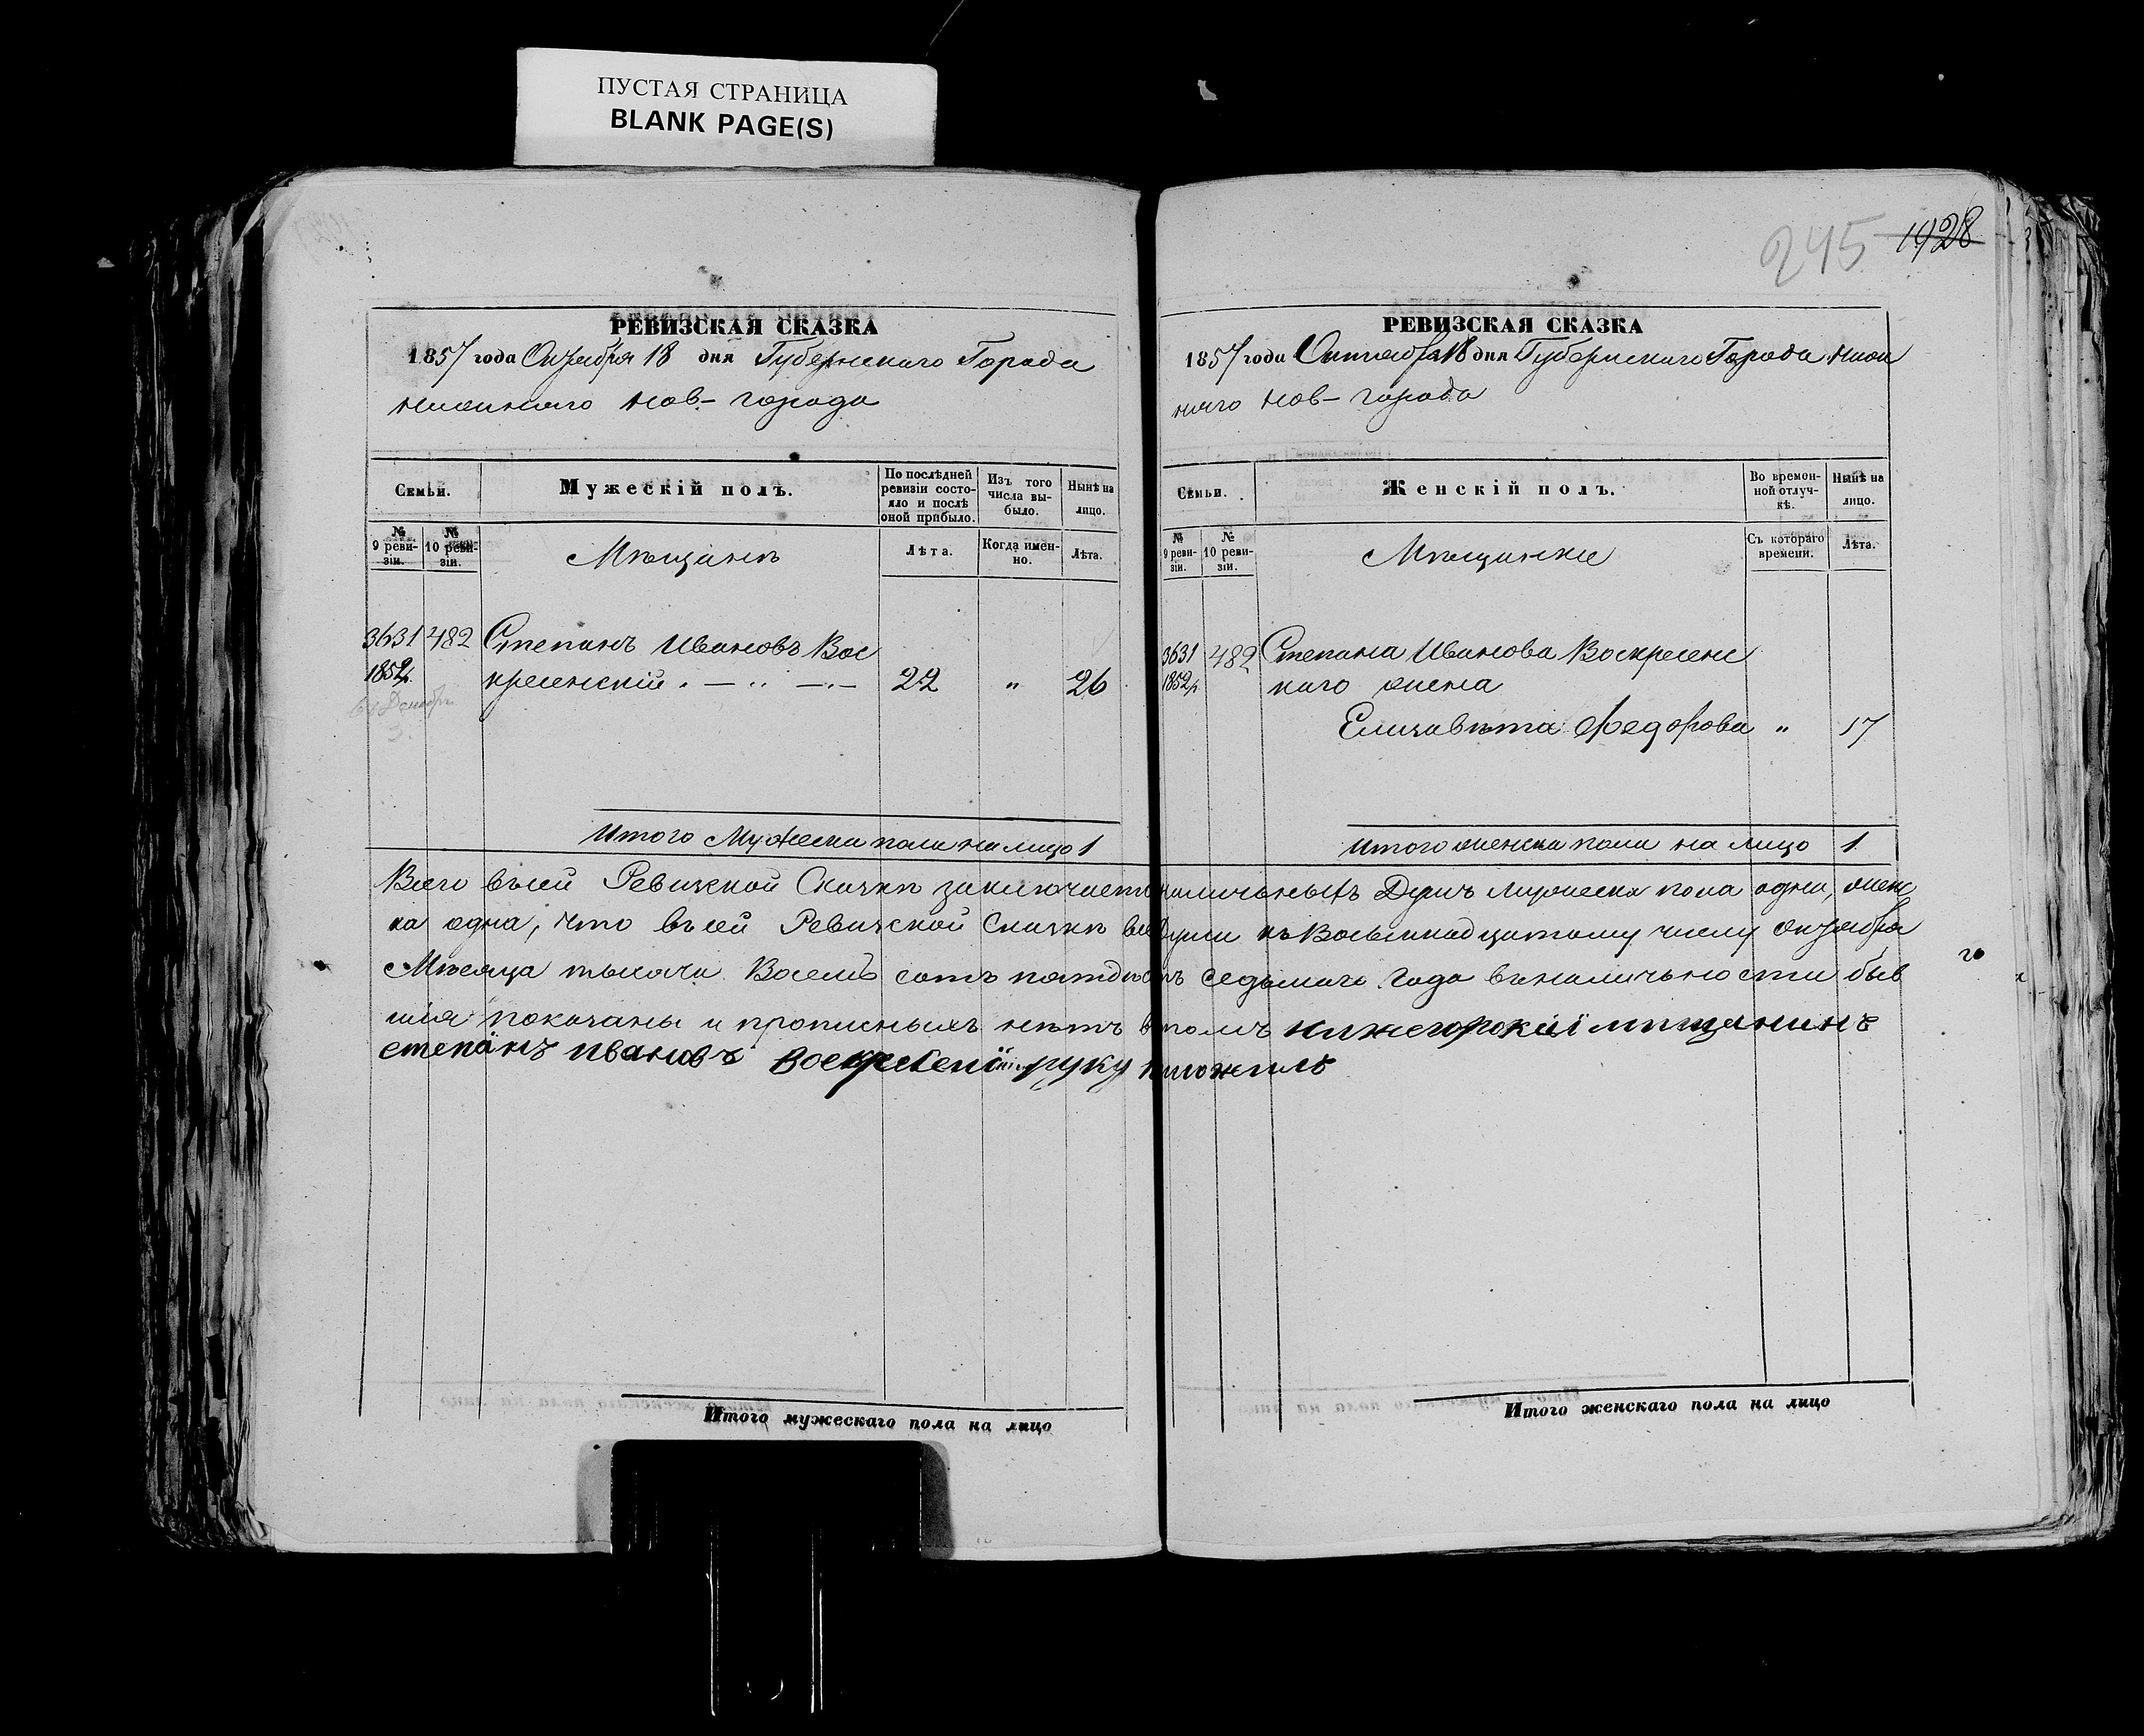 ПУСТАЯ СТРАНИЦА
BLANK PAGE(S)
РЕВИЗСКАЯ СКАЗКА
1857 года Октября 18 дня Губернскаго Города
Нижняго Нов-города
Семьи.
Мужескій полъ.
По послѣдней ревизіи состояло и послѣ оной прибыло.
Изъ того числа выбыло.
Нынѣ на лицо.
№ 9 ревизіи.
№ 10 ревизіи.
Мѣщанъ
Лѣта.
Когда именно.
Лѣта.
3631 482 Степанъ Ивановъ Вос
1852 кресенскій 22 " 26
Декабр
3.
Итого Мужеска пола на лицо 1
245 1928
РЕВИЗСКАЯ СКАЗКА
1857 года Октября 18 дня Губернскаго Города Ниж
няго Нов-города
Семьи.
Женскій полъ.
Во временной отлучкѣ.
Нынѣ на лицо.
№ 9 ревизіи.
№ 10 ревизіи.
Мѣщанки
Съ котораго времени.
Лѣта.
3631 482 Степана Иванова Воскресенс
1852 каго жена
Елизавѣта Федорова " 17
Итого женска пола на лицо 1
Всего въ сей Ревизской Сказкѣ заключаетс наличныхъ Душъ мужеска пола одна, женс
ка одна, что въ сей Ревизской Сказкѣ все Души къ Восьмнадцатому числу октября
Мѣсяца тысяча Восемь сотъ пятдесятъ седьмаго года въ наличности быв
шія показаны и прописныхъ нѣтъ втомъ нижегороцкиі мѣщанинъ
степанъ ивановъ воскресенскій руку приложилъ
Итого мужескаго пола на лицо
Итого женскаго пола на лицо